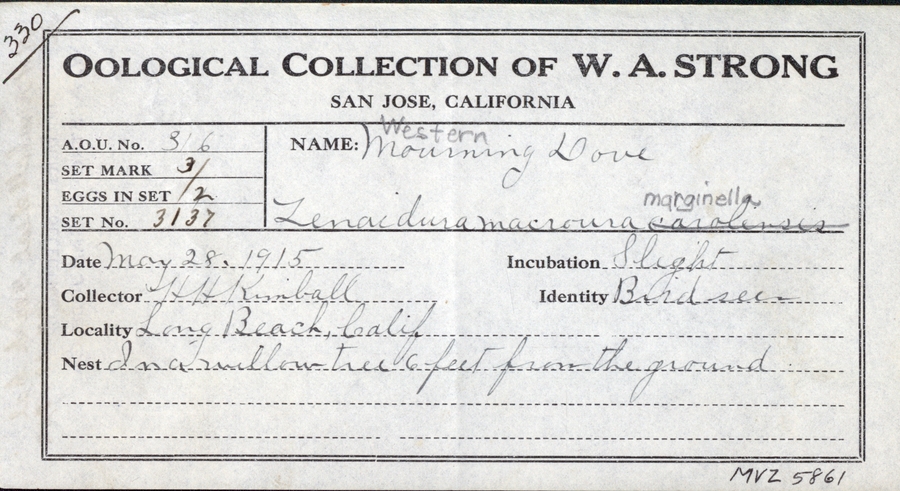 330
OOLOGICAL COLLECTION OF W. A. STRONG
SAN JOSE, CALIFORNIA
A.O.U. No. 316
SET MARK 3/
EGGS IN SET /2
SET No. 3137
NAME: Western Mourning Dove
marginella
Zenaidura macroura carolensis
Date May 28. 1915
Incubation Slight
Collector H H Kimball
Identity Bird seen
Locality Long Beach, Calif
Nest In a willow tree 6 feet from the ground
MVZ 5861